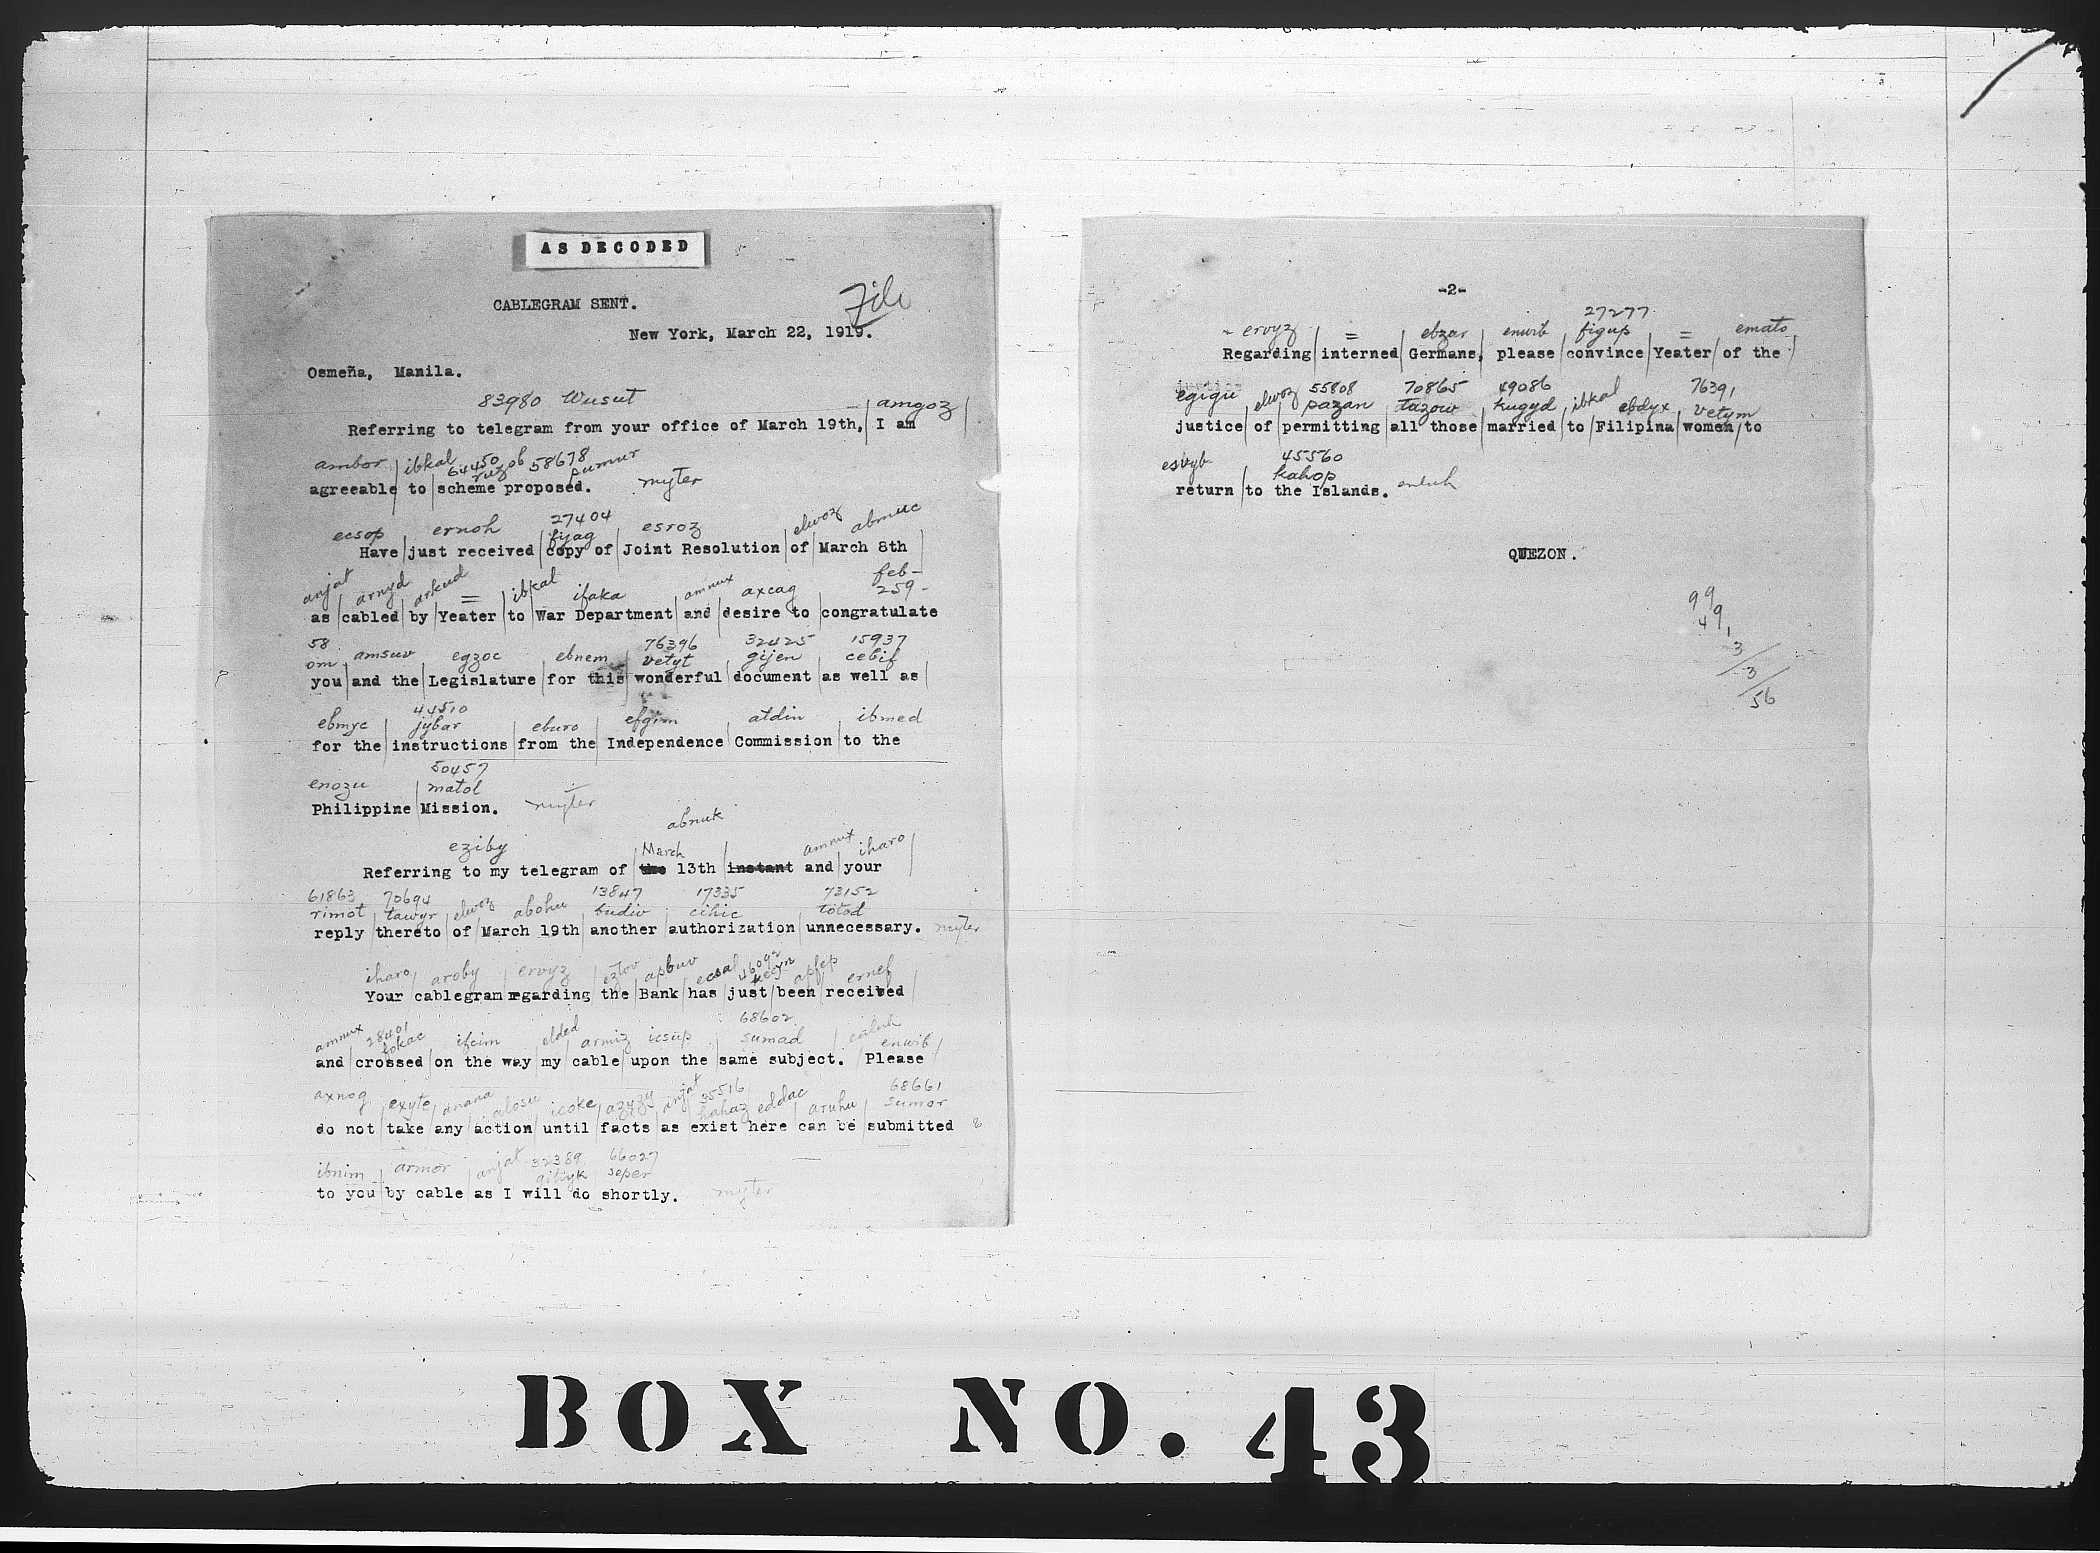 AS DECODED
File
CABLEGRAM SENT.
New York, March 22, 1919.
Osmeña, Manila.
83980 Wusut amgoz
Referring to telegram from your office of March 19th, I am
ambor ibkal 64450 ruzob 58678 pumur
agreeable to scheme proposed. myter
ecsop ernoh 27404 fyag esroz elwoz abmuc
Have just received copy of Joint Resolution of March 8th
anjat arnyd arkud = ibkal ifaka amnux axcag feb- 259-
as cabled by Yeater to War Department and desire to congratulate
58 76396 32425 15937
om amsuv egzoc ebnem vetyt gijen cebif
you and the Legislature for this wonderful document as well as
44510
ebmyc jybar eburo efgim atdin ibmed
for the instructions from the Independence Commission to the
50457
enozu matol
Philippine Mission. myter
abnuk
eziby March amnux iharo
Referring to my telegram of the 13th instant and your
61863 70694 13847 17335 73152
rimot tawyr elwoz abohu budiv cihic totod
reply thereto of March 19th another authorization unnecessary. myter
iharo aroby ervyz eztov apbuv ecsal 46092 kecyn apfep ernef
Your cablegram regarding the Bank has just been received
68602
amnux 28401 fokac ifcim elded armiz icsup sumad enluh enwib
and crossed on the way my cable upon the same subject. Please
35516 68661
axnog exyte anana alosu icoke azyzy anjat hahaz eddac aruhu sumor
do not take any action until facts as exist here can be submitted
32389 66027
ibnim armor anjat gihyk seper
to you by cable as I will do shortly. myter
-2-
27277
ervyz = ebzar enwib figup = emato
Regarding interned Germans, please convince Yeater of the
justice
55808 70865 49086 76391
egigu elwoz pazan tazow kugyd ibkal ebdyx vetym
justice of permitting all those married to Filipina women to
45560
esvyb kahop
return to the Islands. enluh
QUEZON.
99
49
1
3
3
56
BOX NO. 43